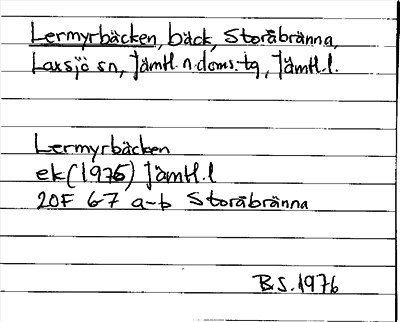 Lermyrbäcken, bäck, Storåbränna,
Laxsjö sn, Jämtl. n. doms. tg, Jämtl. l.
Lermyrbäcken
ek (1975) Jämtl. l
20F 67 a-b Storåbränna
B.S. 1976